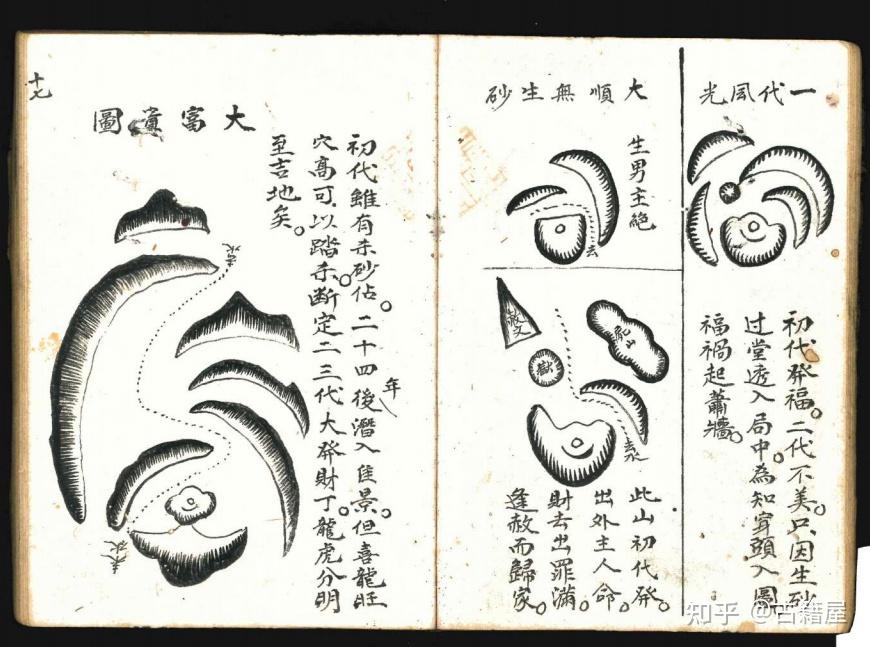 一代風光
初代發福。二代不美。只因生砂
过堂透入局中。為知穿頭入圖
福禍起蕭牆。
大順無生砂
生男主絕
去
赦文
獄
屍山
去水
此山初代發。
出外主人命。
財去出罪滿。
逢赦而歸家。
十七
大富貴圖
初代雖有禾砂佔。二十四年後潛入佳景。但喜龍旺
穴高可以踏禾。断定二三代大發財丁。龍虎分明
至吉地矣。
知乎 @古籍屋